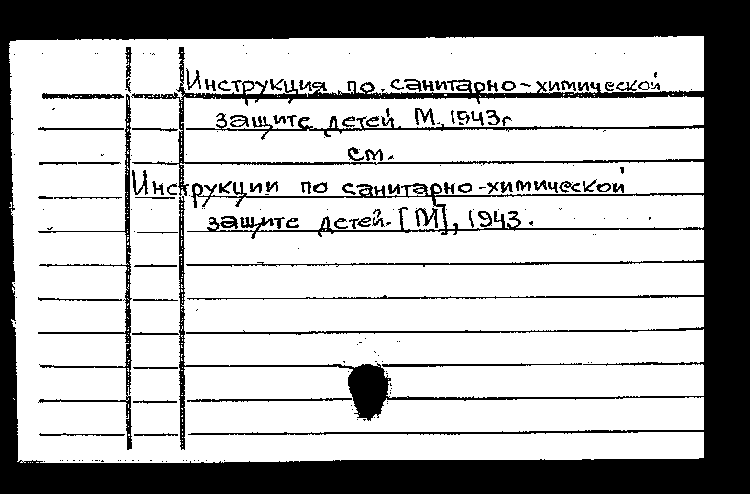 Инструкция по санитарно-химической
защите детей. М., 1943г
см.
Инструкции по санитарно-химической
защите детей. [М], 1943.